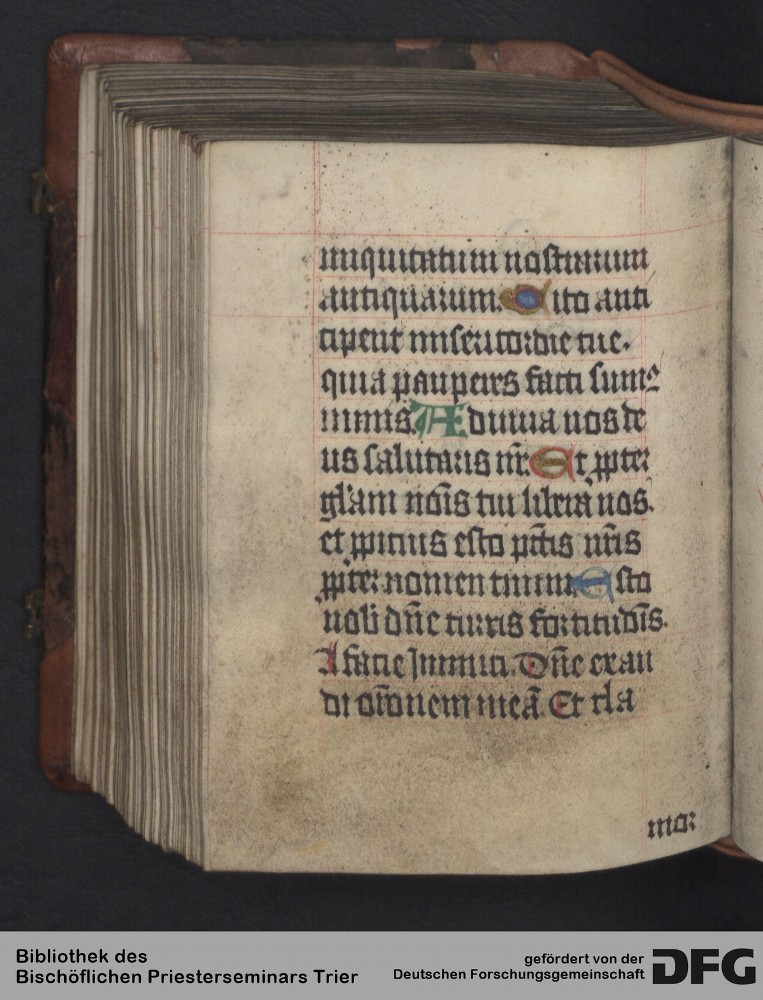 iniquitatum nostrarum
antiquarum. Cito anti
cipent misericordie tue.
quia pauperes facti sumꝰ
nimis. Adiuua nos de
us salutaris nr̄. Et ꝓpter
gl̄am nōis tui libera nos.
et ꝓpitius esto pctīs nr̄is
ꝓpter nomen tuum. Esto
nob̄ dn̄e turris fortitudīs.
A facie Inimici. Dn̄e exau
di or̄onem meā. Et cla
mor
Bibliothek des
Bischöflichen Priesterseminars Trier
gefördert von der
Deutschen Forschungsgemeinschaft
DFG